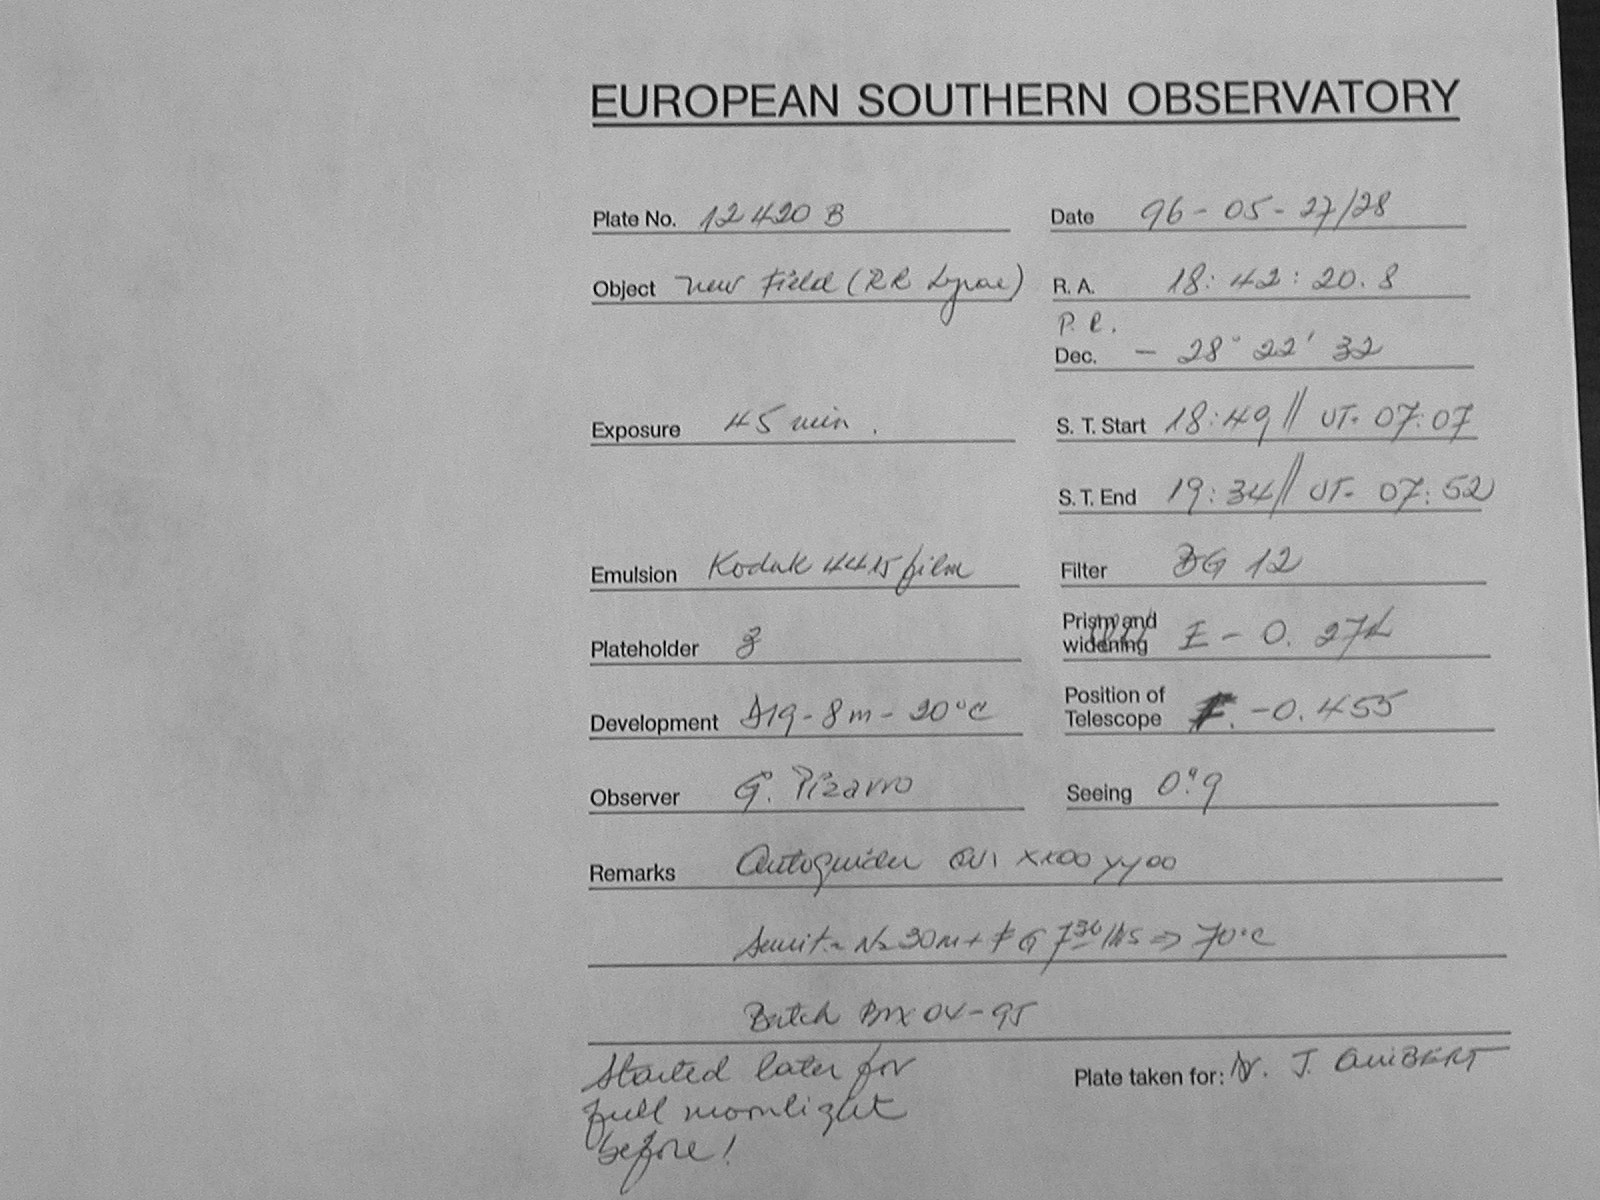 EUROPEAN SOUTHERN OBSERVATORY
Plate No. 12420 B
Date 96-05-27/28
Object New Field (RR Lyrae)
R. A. 18:42:20.8
P. E.
Dec. - 28° 22' 32
Exposure 45 min.
S. T. Start 18:49 // UT- 07:07
S. T. End 19:34 // UT- 07:52
Emulsion Kodak 4415 film
Filter BG 12
Plateholder 3
Prism and widening - 0.27
Development D19-8m-20°C
Position of Telescope -0.455
Observer G. Pizarro
Seeing 0".9
Remarks Autoguider xx00 yy00
30m + FG 7 30 hrs ⇒ 70°C
Batch 04-95
Started later for
full moonlight
before!
Plate taken for: Dr. J. GUIBERT